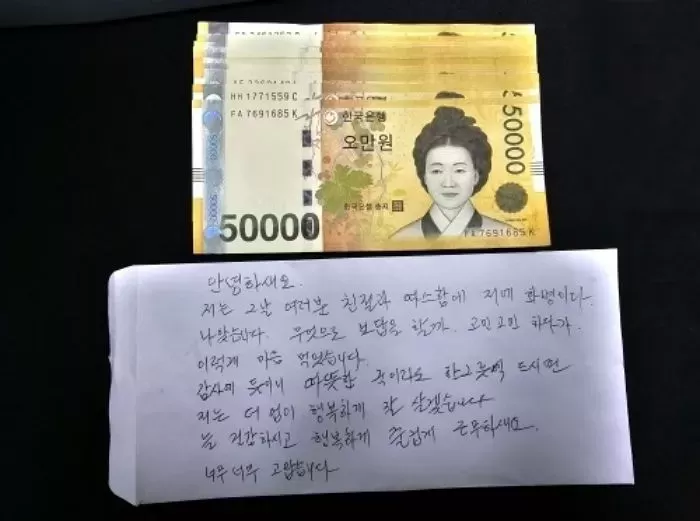 HH 1771559 C
FA 7691685 K
한국은행
오만원
50000
한국은행 총재
50000
FA 7691685 K
안녕하세요.
저는 그날 여러분 친절과 따스함에 저의
나왔습니다. 무엇으로 보답을 할까. 고민고민 하다가.
이렇게 마음 먹었습니다.
감사의 뜻이니 따뜻한 국이라도 한그릇씩 드시면
저는 더 없이 행복하게 잘 살겠습니다
늘 건강하시고 행복하게 즐겁게 근무하세요.
너무너무 고맙습니다